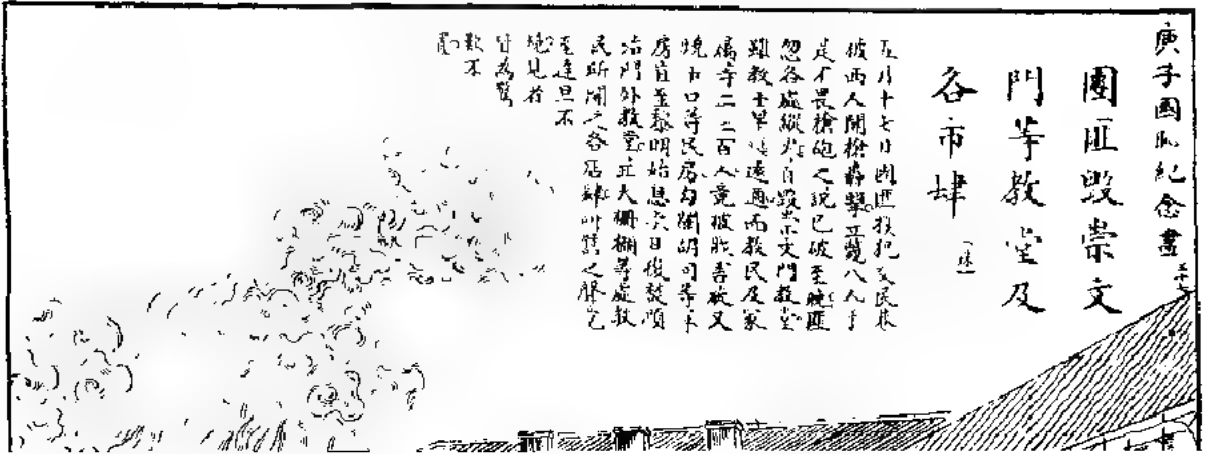 庚子國恥紀念畫
團匪毀崇文
門等教堂及
各市肆
五月十七日團匪撲犯交民巷
被西人開槍轟擊立斃八人于
是不畏槍砲之說已破至晚匪
忽各處縱火首毀崇文門教堂
雖教士早遠遁而教民及家
屬幸二三百人竟被戕害
燒市口等民房勾闌胡同等
房直至黎明始息次日復焚順
治門外教堂並大柵欄等處教
民所開之各店肆
至達旦不
絕見者
皆為驚
歎不